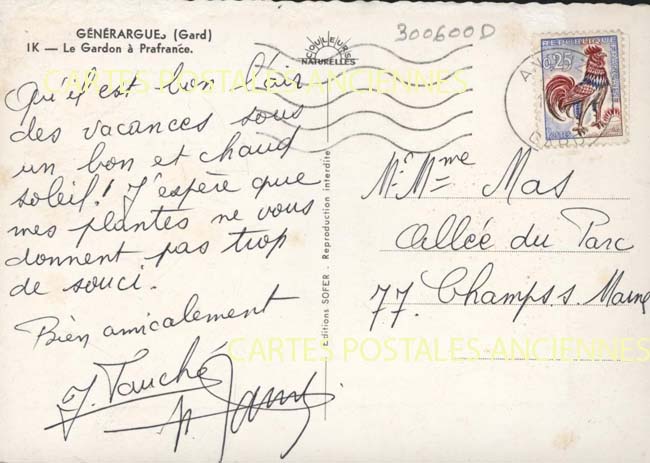 GÉNÉRARGUES (Gard)
IK — Le Gardon à Prafrance.
COULEURS
NATURELLES
300600D
REPUBLIQUE
0,25
GARD
CARTES POSTALES ANCIENNES
Qu'il est bon l'air
des vacances sous
un bon et chaud
soleil! J'espère que
mes plantes ne vous
donnent pas trop
de souci.
Bien amicalement
Editions SOFER - Reproduction interdite
Mr Mme Mas
Allée du Parc
77. Champs s. Marne
CARTES POSTALES ANCIENNES